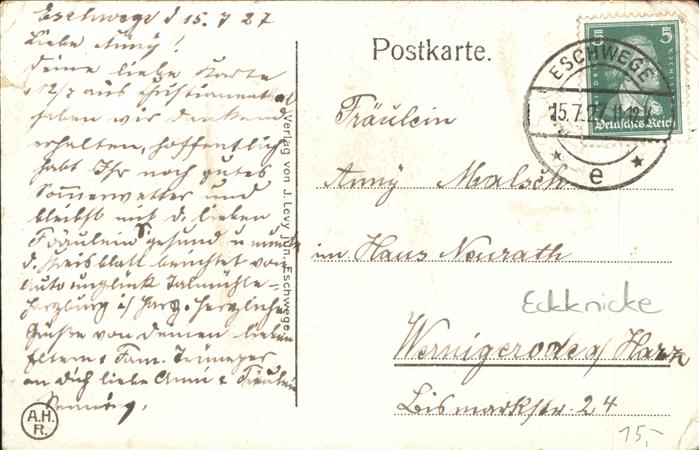 Eschwege d 15.7 27
Liebe Anny!
Deine liebe Karte
v 12/7 aus
haben wir dankend
erhalten, hoffentlich
habt Ihr noch gutes
Sommerwetter und
bleibst mit d. lieben
Fräulein gesund u
d. Kreisblatt berichtet von
Autounglück
Harzburg i/ Harz. Herzliche
Grüße von Deinen lieben
Eltern & Fam.
an Dich liebe Anni & Fräulein
A.H.
R.
Verlag von J. Levy jun. Eschwege.
Postkarte.
5 5
Deutsches Reich
ESCHWEGE
15.7.27. 11-12
* e *
Fräulein
Anny Malsch
im Haus Neurath
Eckknicke
Wernigerode a/ Harz
Bismarkstr. 24
15,-